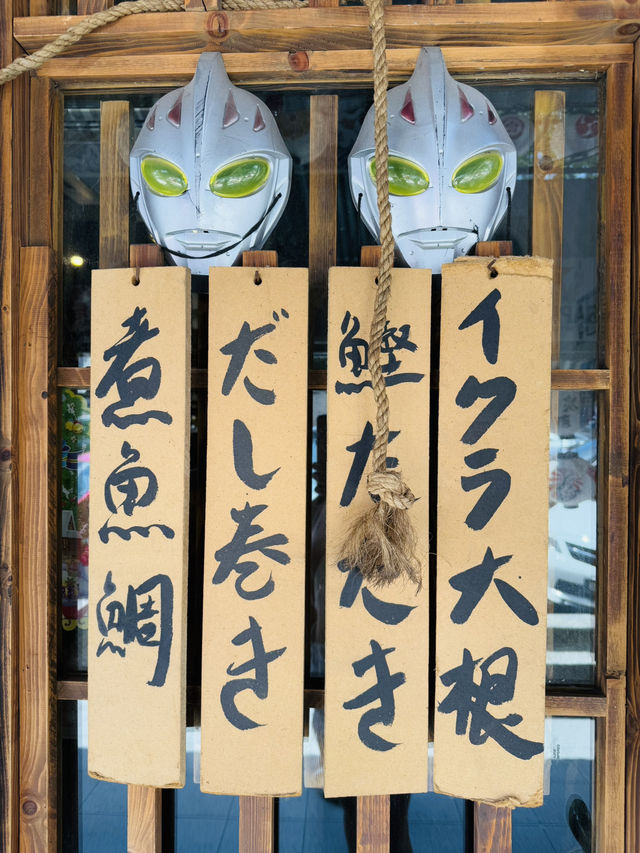 イクラ大根
鰹たたき
だし巻き
煮魚鯛